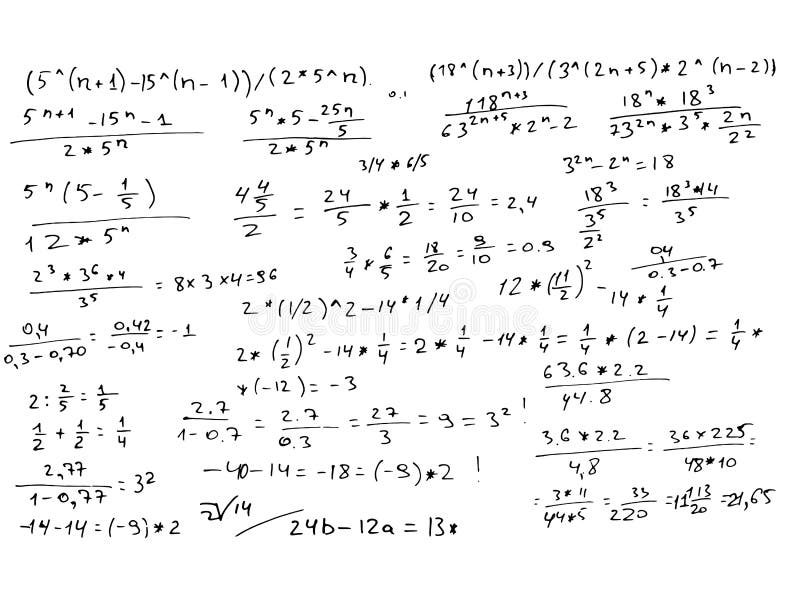 (5^(n+1)-15^(n-1))/(2*5^n).
(18^(n+3))/(3^(2n+5)*2^(n-2))
0.1
5^{n+1} -15^n -1 / 2*5^n
5^n*5-25n/5 / 2*5^n
118^{n+3} / 63^{2n+5}*2^n-2
18^n*18^3 / 73^{2n}*3^5*2n/2^2
3/4*6/5
3^{2n}-2^n=18
5^n(5-1/5) / 12*5^n
4 4/5 / 2 = 24/5 * 1/2 = 24/10 = 2,4
18^3 / 3^5/2^2 = 18^3*44 / 3^5
3/4 * 6/5 = 18/20 = 9/10 = 0.9
2^3*3^6*4 / 3^5 = 8×3×4=96
12*(11/2)^2 - 14*1/4
0,4 / 0.3-0.7
2*(1/2)^2-14*1/4
0,4 / 0,3-0,70 = 0,42 / -0,4 = -1
2*(1/2)^2 -14*1/4=2*1/4 -14*1/4=1/4*(2-14)=1/4*
*(-12)=-3
63.6*2.2 / 44.8
2:2/5=1/5
2.7 / 1-0.7 = 2.7 / 0.3 = 27/3 = 9=3^2 !
1/2+1/2=1/4
3.6*2.2 / 4,8 = 36*225 / 48*10 =
2,77 / 1-0,77 = 3^2
-40-14=-18=(-9)*2 !
= 3*11 / 44*5 = 33/220 =11 113/20 =21,65
-14-14=(-9)*2
2√14
24b-12a=13*
dreamstime